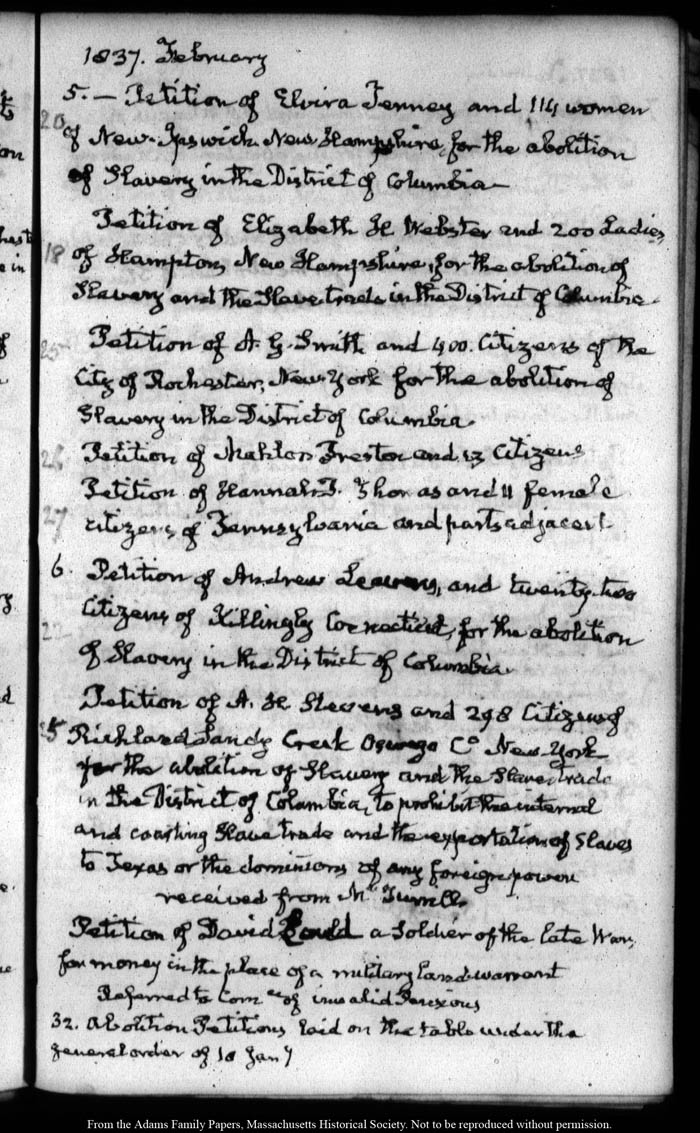 1837. February
5. — Petition of Elvira Tenney and 114 women
20 of New-Ipswich New Hampshire, for the abolition
of Slavery in the District of Columbia—
Petition of Elizabeth H Webster and 200 Ladies
18 of Hampton, New Hampshire, for the abolition of
Slavery and the Slave trade in the District of Columbia.
25 Petition of A. G. Smith and 400. Citizens of the
City of Rochester, New-York for the abolition of
Slavery in the District of Columbia.
26 Petition of Mahlon Preston and 13 Citizens
Petition of Hannah T. and 11 female
27 citizens of Pennsylvania and parts adjacent
6. Petition of Andrew Leavens, and twenty-two
22 Citizens of Killingly Connecticut, for the abolition
of Slavery in the District of Columbia.
Petition of A. H Stevens and 298 Citizens of
25 Richland Sandy Creek Oswego Co. New-York
for the abolition of Slavery and the Slave trade
in the District of Columbia, to prohibit the internal
and coasting Slave trade and the exportation of Slaves
to Texas or the dominions of any foreign power
received from Mr Turrill.
Petition of David Gould a Soldier of the late War,
for money in the place of a military land-warrant
Referred to Comee of invalid Pensions
32. Abolition Petitions laid on the table under the
general order of 18 Jany
From the Adams Family Papers, Massachusetts Historical Society. Not to be reproduced without permission.